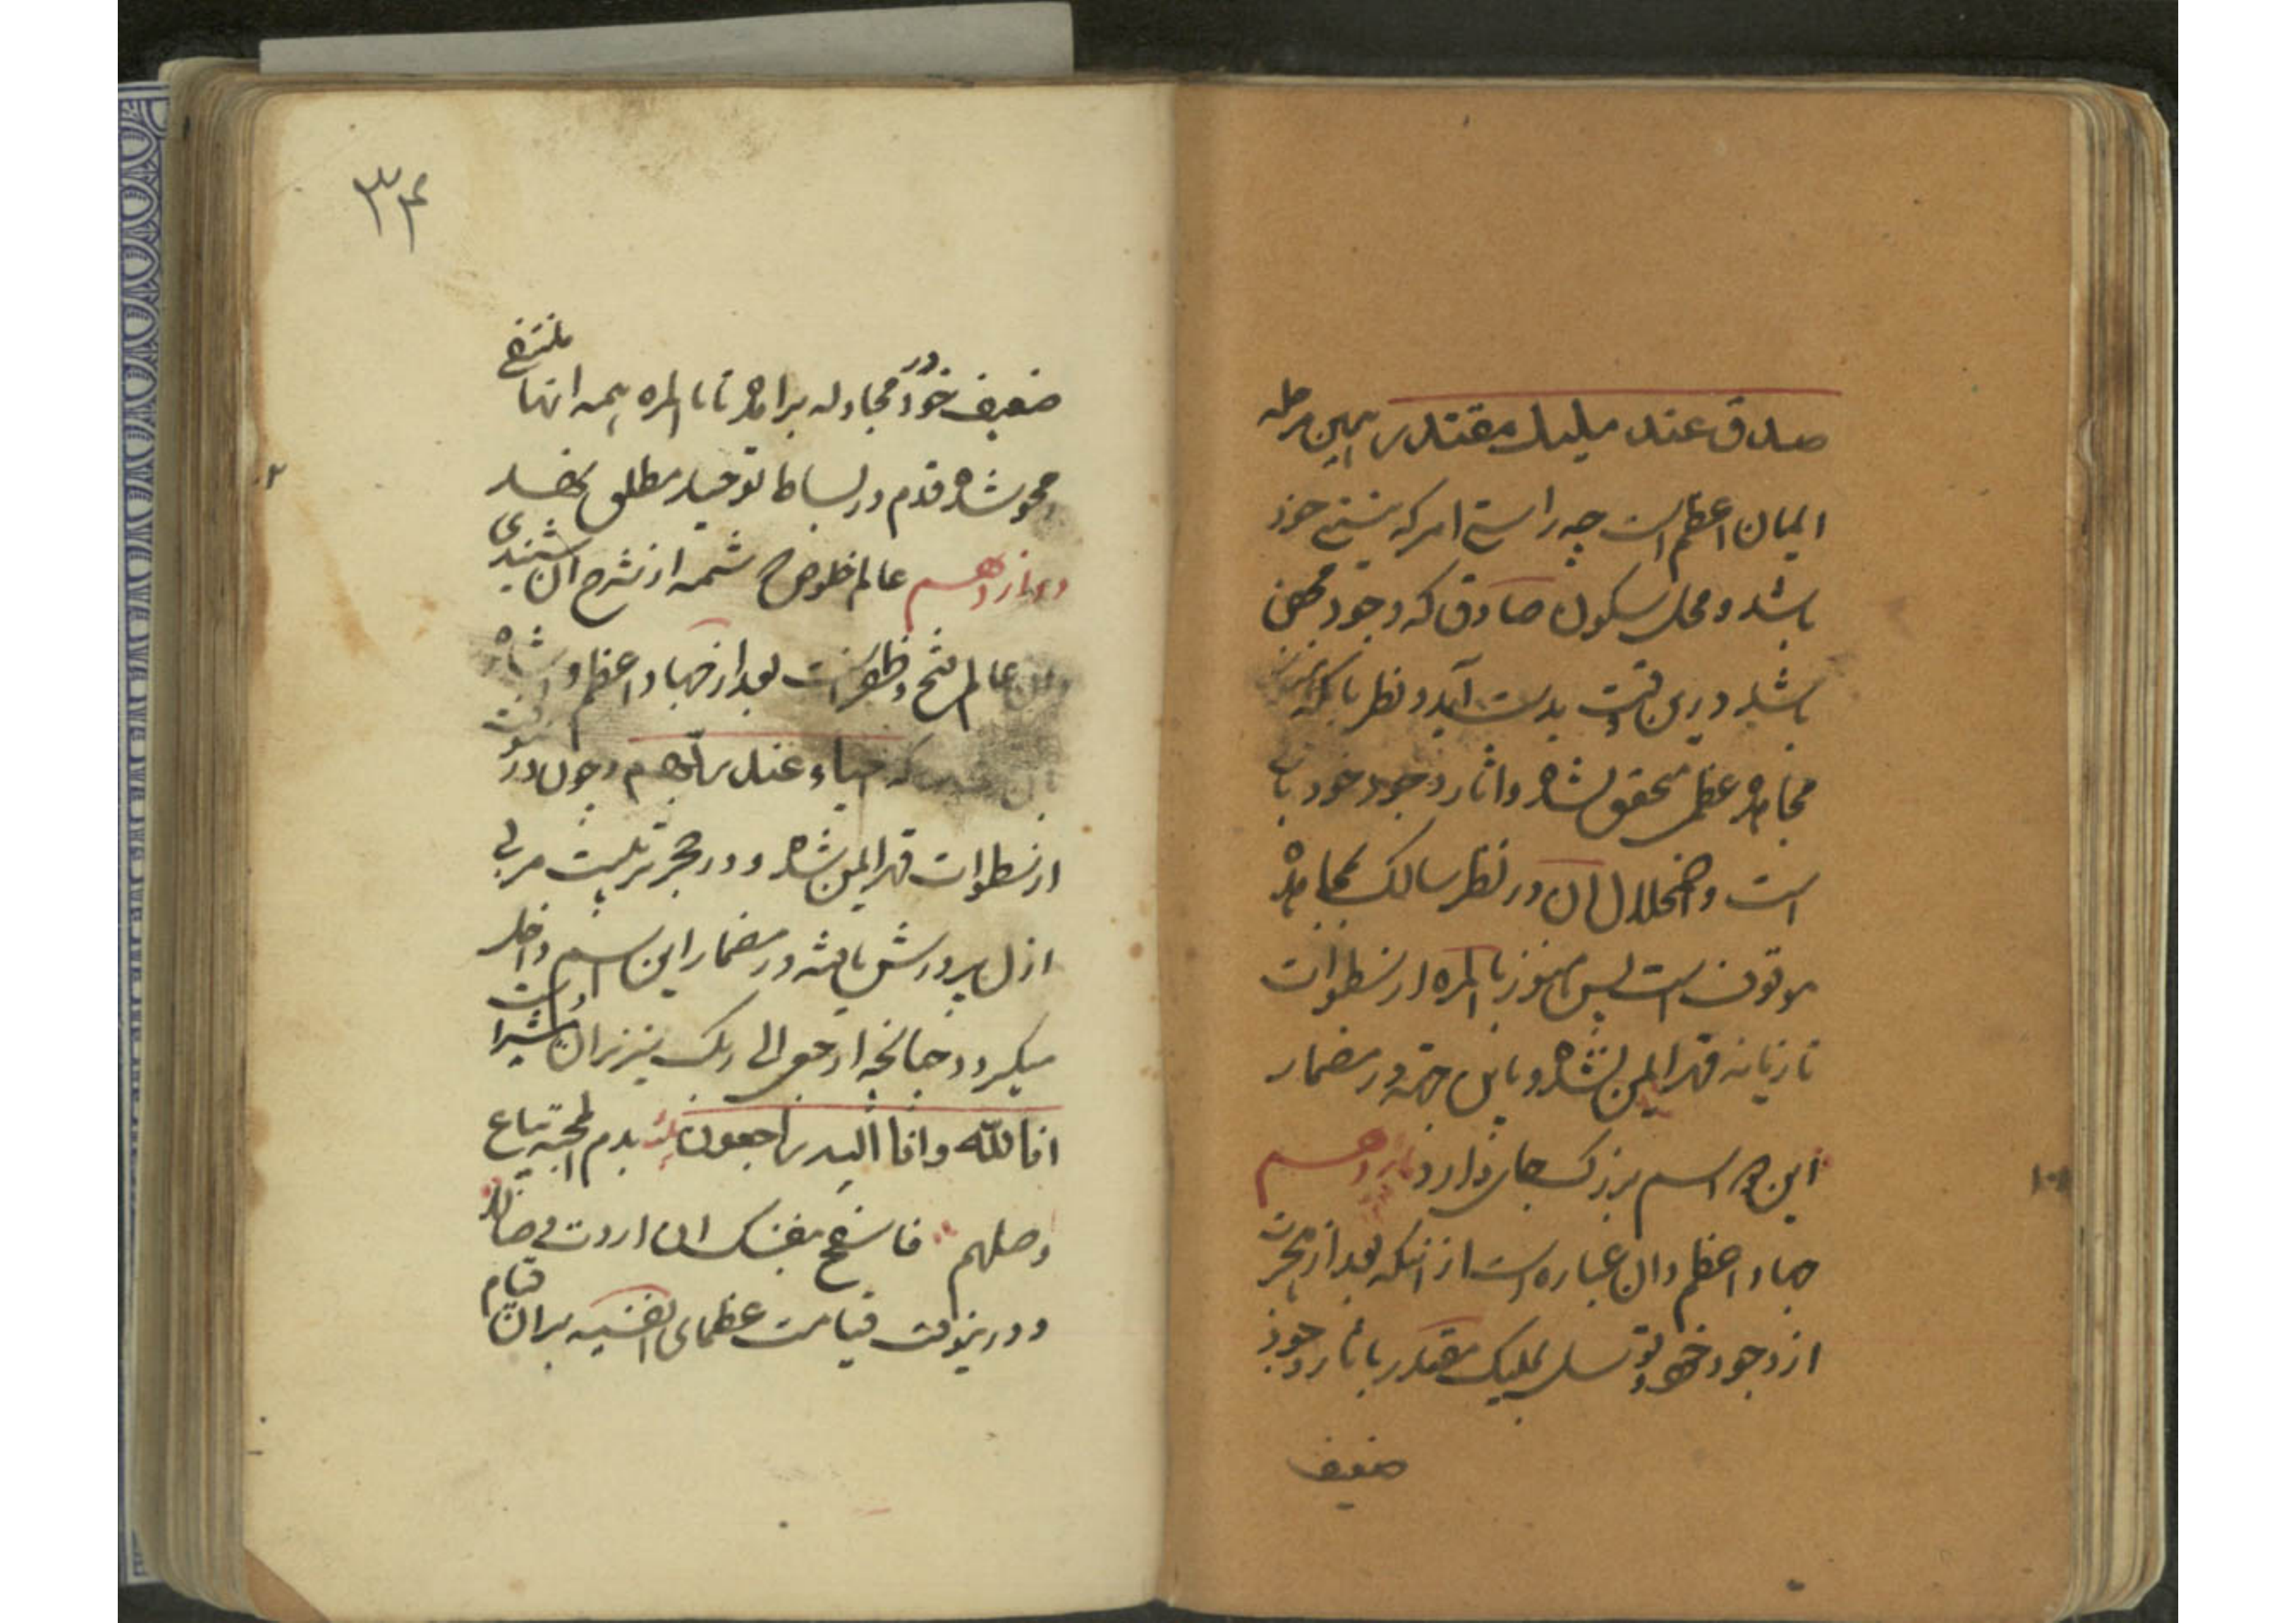 صدق عند ملیک مقتدر همین مرحله
ایمان اعظم است چه راستی امر که نیستی خود
باشد و محل سکون صادق که وجود محض
باشد درین وقت بدست آید و نظر بآنکه هنوز
مجاهده عظمی متحقق نشده و اثار وجود خود باقی
است و اضمحلال ان در نظر سالک بمجاهده
موقوف است پس هنوز بالمره از سطوات
تازیانه قهر ایمن نشده و باین جهة در مضمار
این دو اسم بزرک جای دارد یازدهم
جهاد اعظم و ان عباره است از انکه بعد از هجرت
از وجود خود و توسل بملیک مقتدر باثار وجود
ضعیف
۳۴
ضعیف خود در مجادله برامده تا بالمره همه انها منتفی
و محو شده قدم در بساط توحید مطلق نهد
دوازدهم عالم خلوص شمه از شرح ان شنیدی
عالم فتح و ظفر است بعد از جهاد اعظم و
که احیاء عند ربهم و چون درین وقت
از سطوات قهر ایمن شده و در حجر تربیت مربی
ازل پرورش یافته در مضمار این اسم داخل
میکردد چنانچه ارجعی الی ربک نیز بران اشارت
انا لله وانا الیه راجعون بدم المحب یباع
وصلهم فاسمح بنفسک ان اردت وصالا
و درینوقت قیامت عظمای انفسیه بر ان قیام